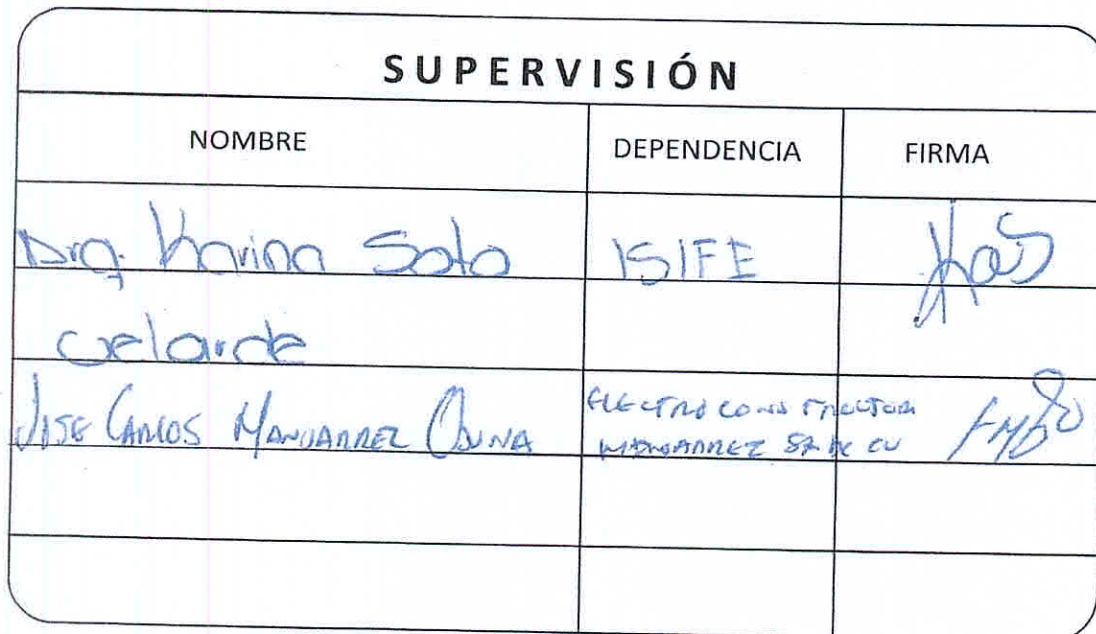 SUPERVISIÓN
NOMBRE DEPENDENCIA FIRMA
Arq. Karina Soto ISIFE
Velarde
JOSE CARLOS MANJARREZ OSUNA ELECTROCONSTRUCTORA
MANJARREZ SA DE CV